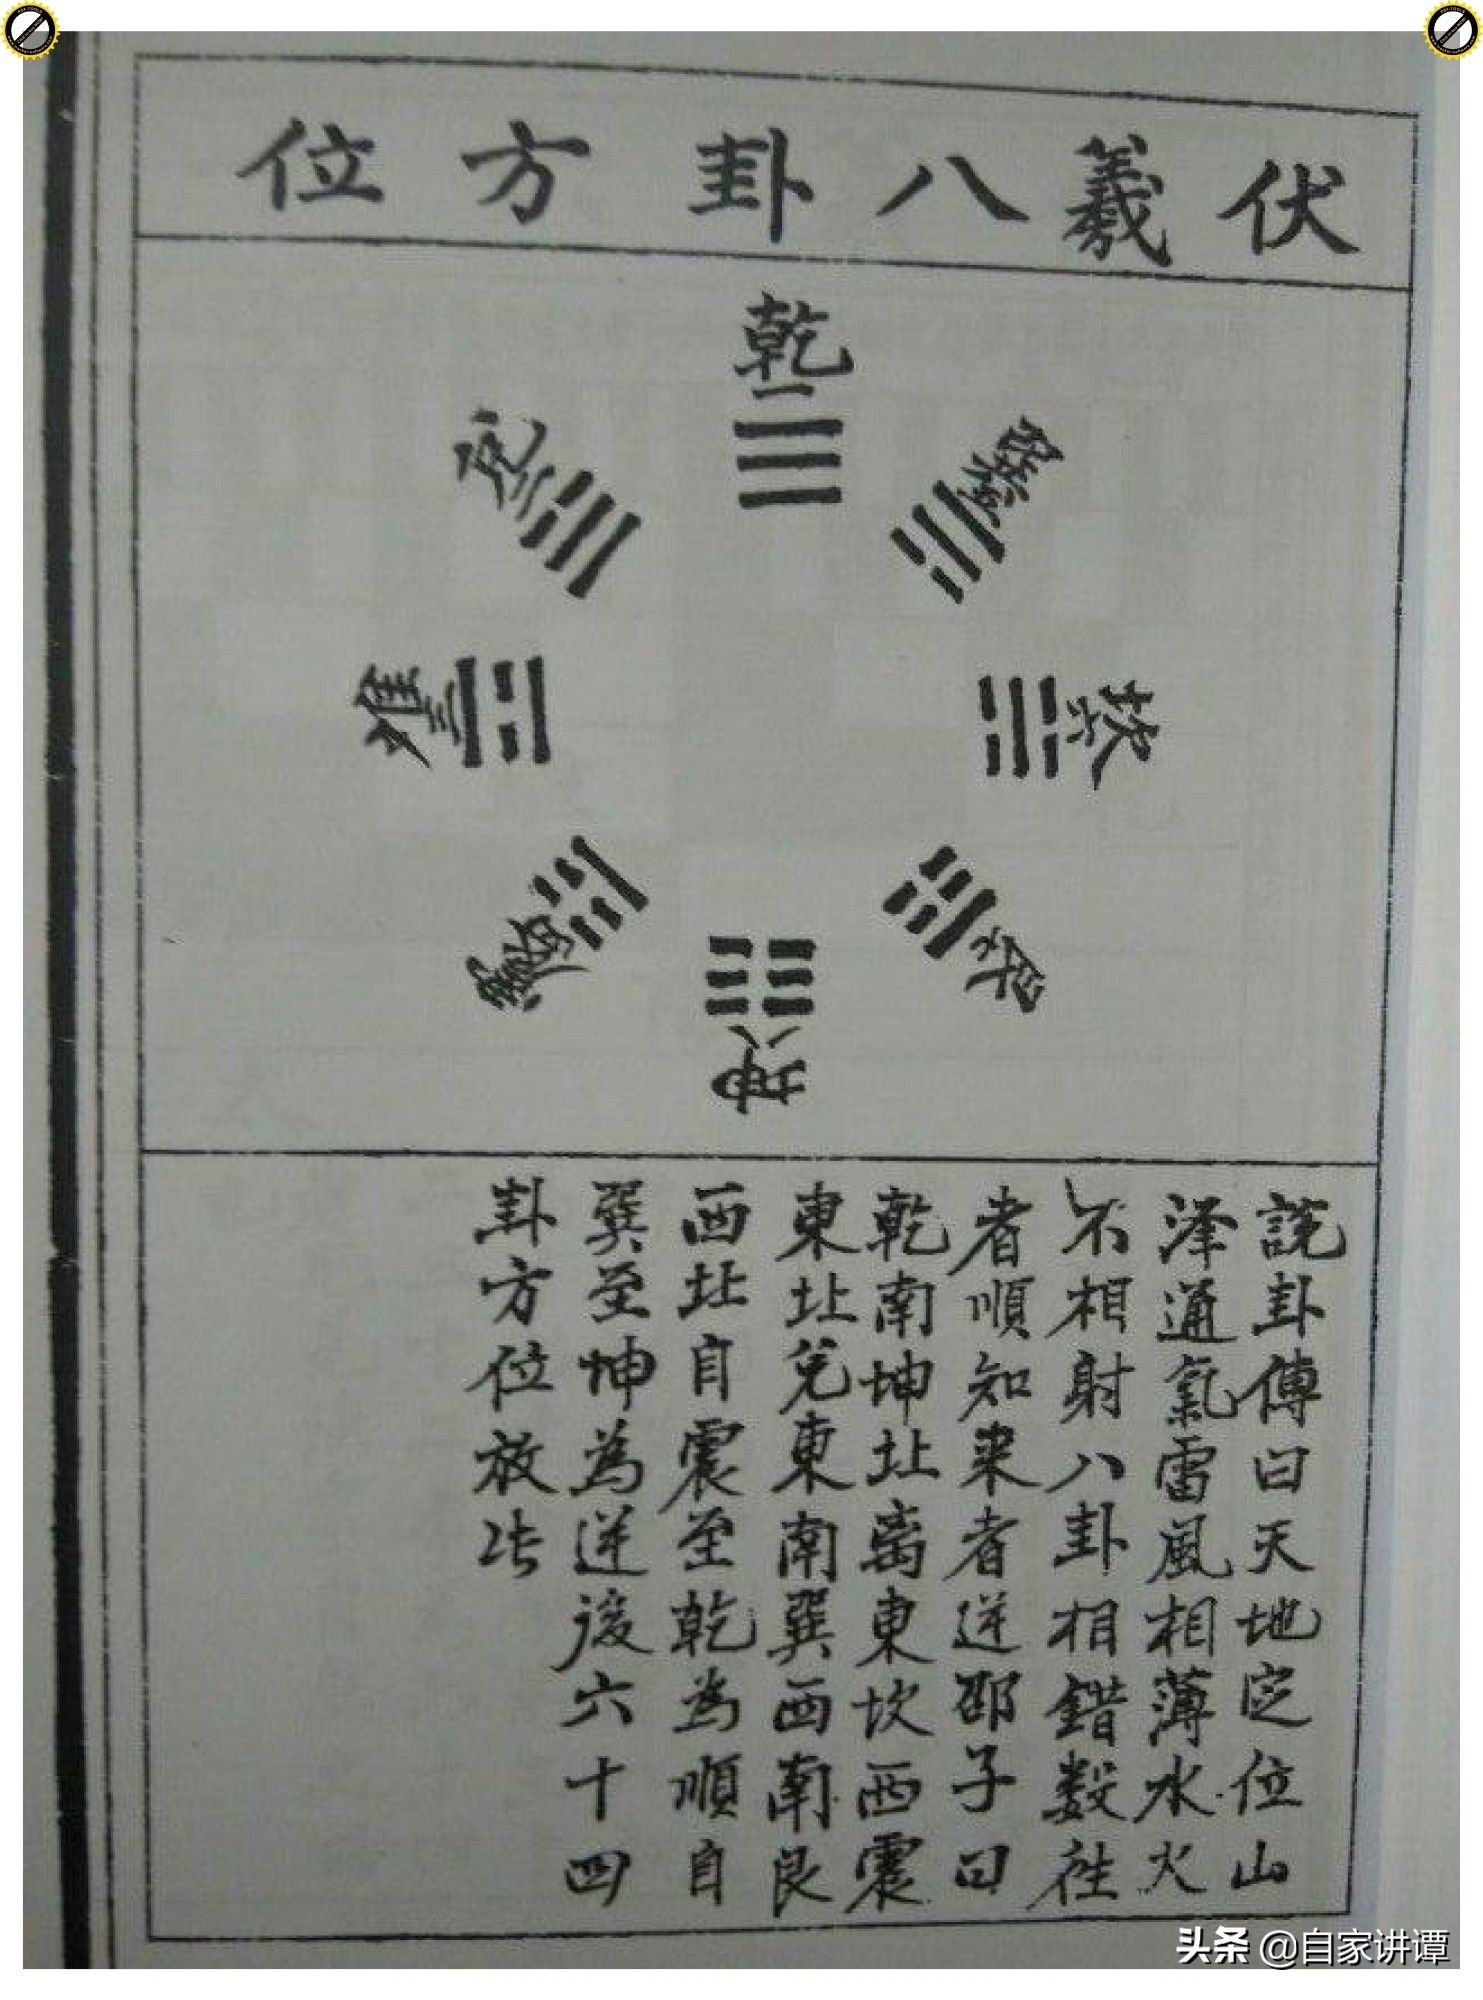 伏羲八卦方位
乾一
兌二
離三
震四
巽五
坎六
艮七
坤八
說卦傳曰天地定位山
澤通氣雷風相薄水火
不相射八卦相錯數往
者順知来者逆邵子曰
乾南坤北离東坎西震
東北兌東南巽西南艮
西北自震至乾為順自
巽至坤為逆後六十四
卦方位放此
头条 @自家讲谭